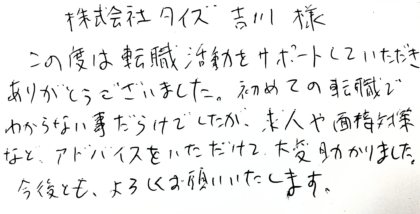 株式会社タイズ 吉川 様
この度は転職活動をサポートしていただき
ありがとうございました。初めての転職で
わからない事だらけでしたが、求人や面接対策
など、アドバイスをいただけて大変助かりました。
今後とも、よろしくお願いいたします。